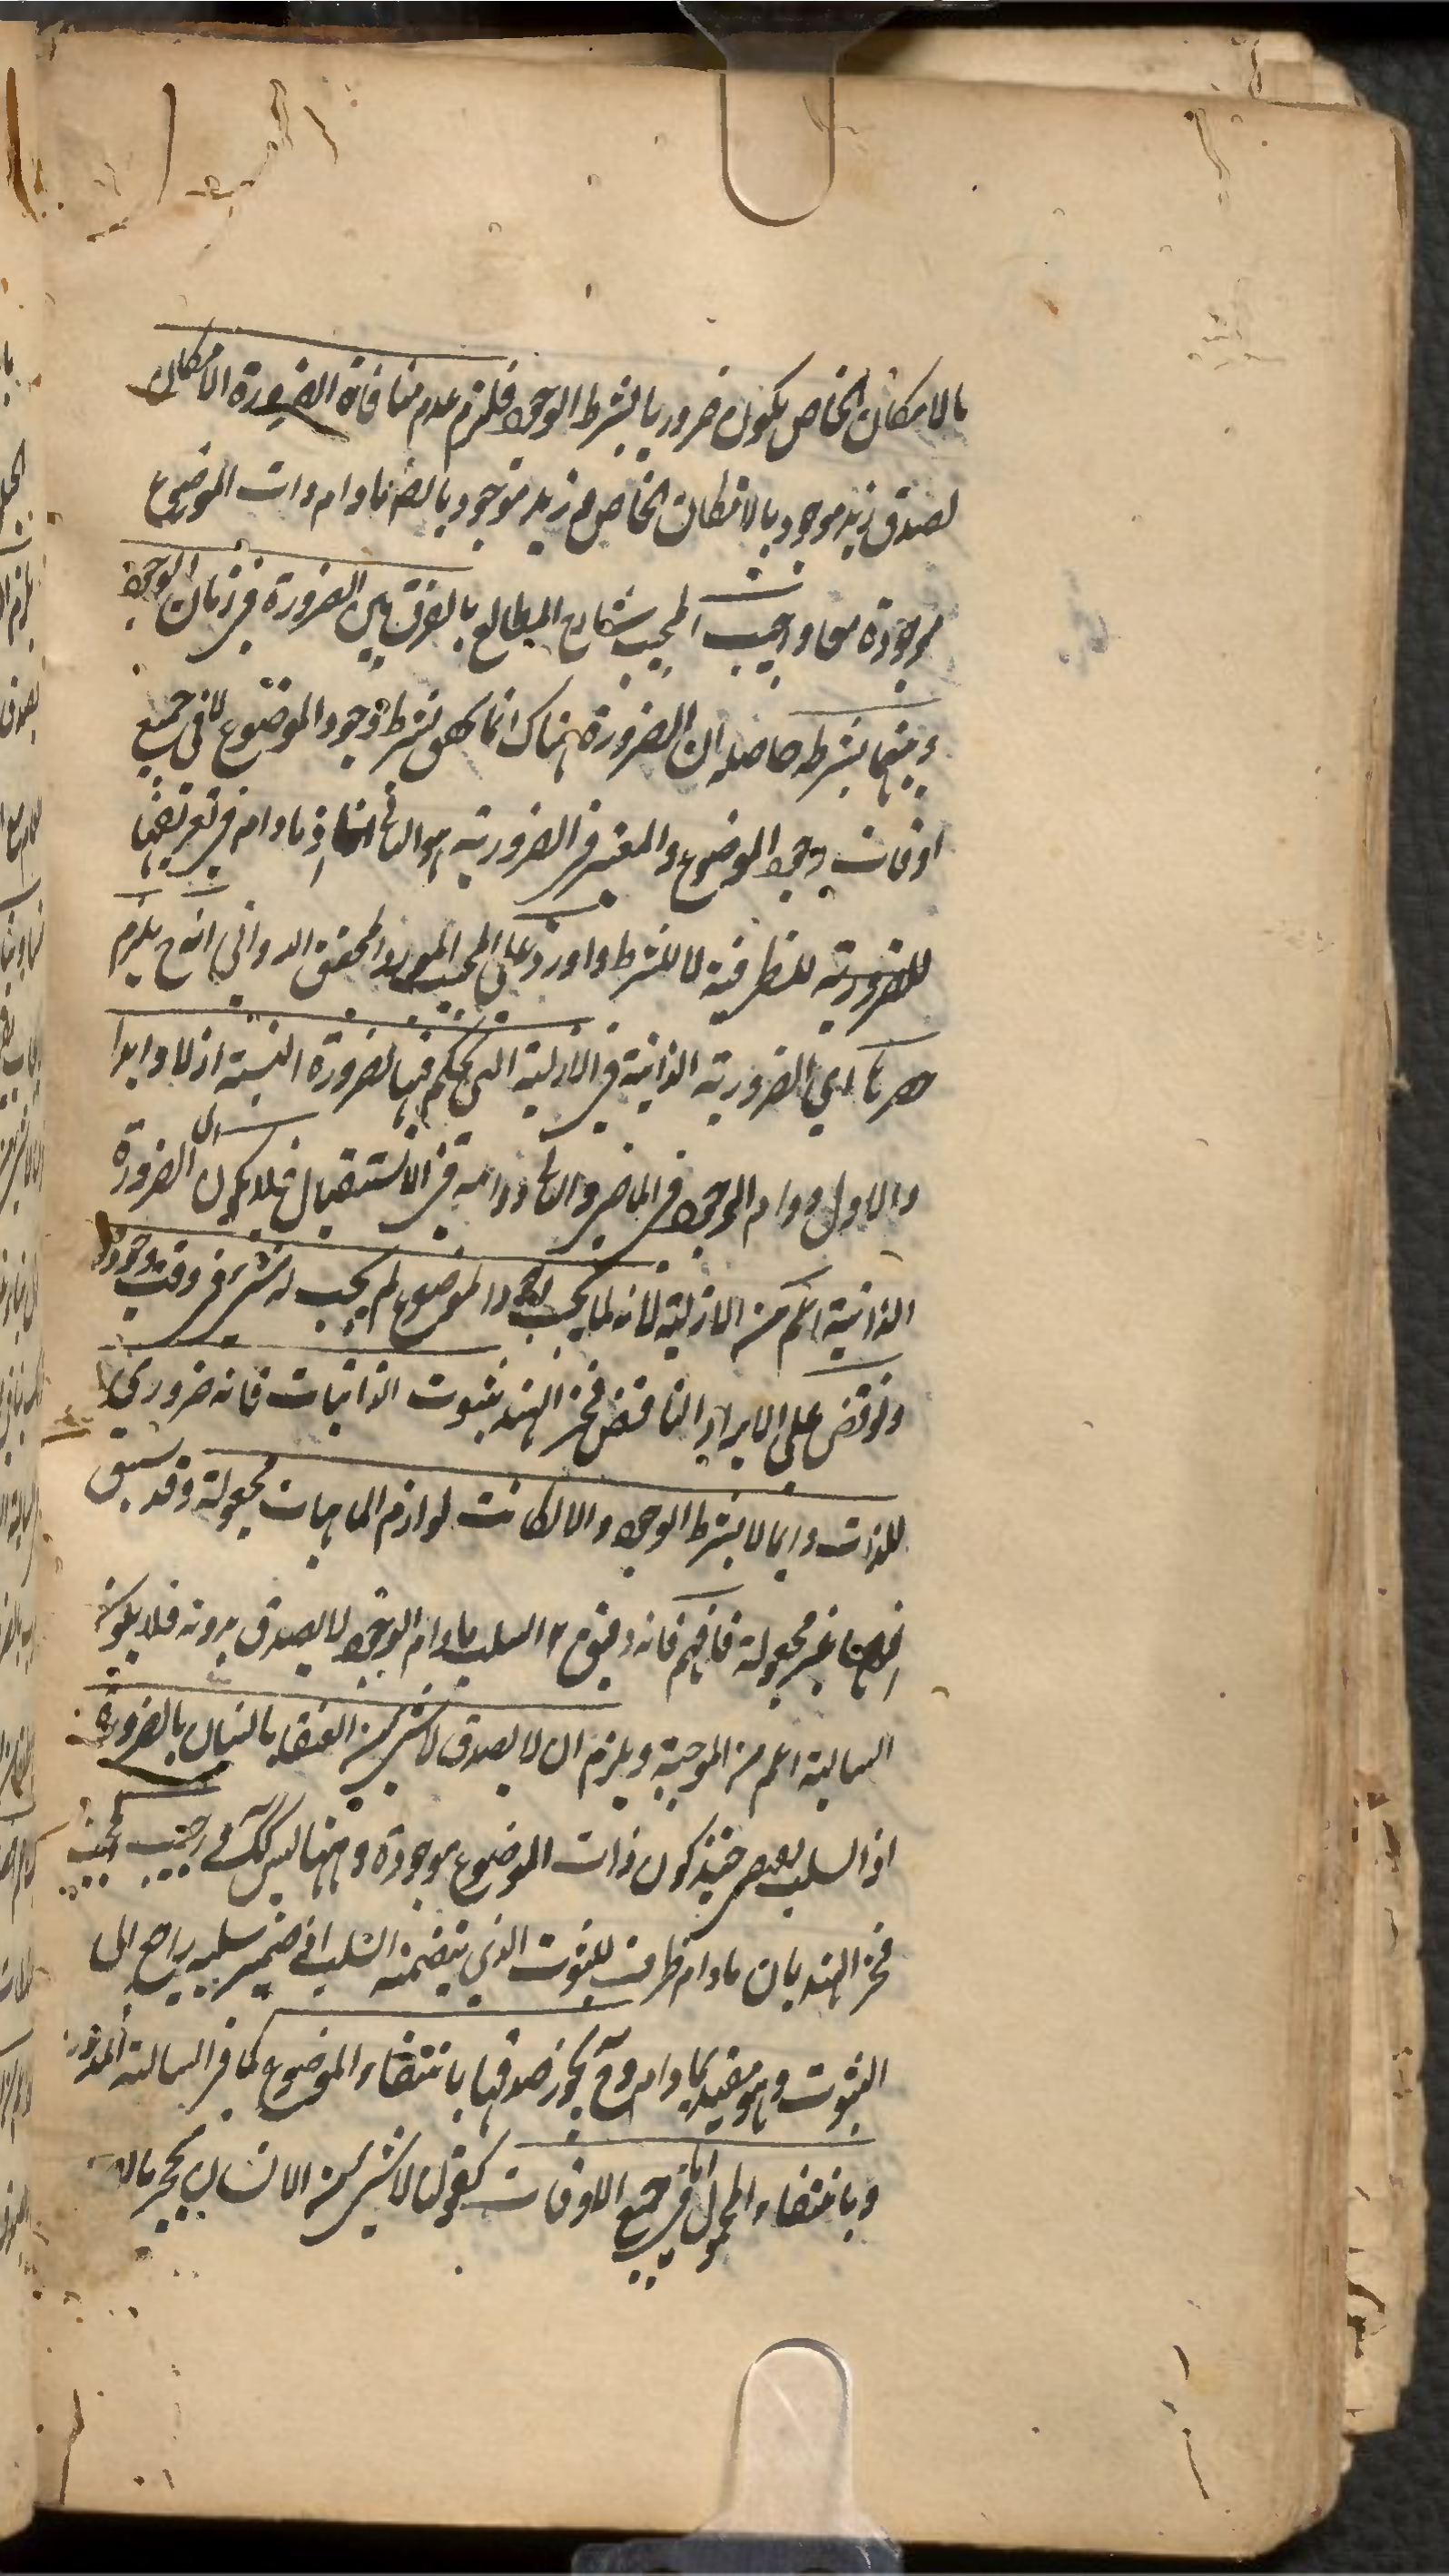 بالامكان الخاص يكون ضروريا بشرط الوجود فلزم عدم منافاة الضرورة الامكان
لصدق زيد موجود بالامكان الخاص و زيد موجود بالضرورة مادام ذات الموضوع
موجودة معا واجيب المجيب شارح المطالع بالفرق بين الضرورة في زمان الوجود
وبينها بشرطه حاصله ان الضرورة هناك انما هي بشرط وجود الموضوع لا في جميع
اوقات وجود الموضوع والمعتبر في الضرورية هو الثاني اذ مادام في تعريفها
للضرورية للظرفية لا للشرط واورد على المجيب المورد المحقق الدواني انه ح يلزم
حصرها اي الضرورية الذاتية في الازلية التي يحكم فيها بضرورة النسبة ازلا وابدا
والاول دوام الوجود في الماضي والثاني دوامه في الاستقبال فلا يكون الضرورة
الذاتية اعم من الازلية لانه لما لم يجب وجود الموضوع لم يجب له شيء في وقت وجوده
ونوقض على الايراد الناقض فخر الهند بثبوت الذاتيات فانه ضروري
للذات دايما لا بشرط الوجود والا لكانت لوازم الماهيات مجعولة وقد سبق
انها غير مجعولة فافهم فانه دقيق السلب مادام الوجود لا يصدق بدونه فلا يكون
السالبة اعم من الموجبة ويلزم ان لا يصدق لا شيء من العنقاء بانسان بالضرورة
اذ السلب حينئذ كون ذات الموضوع موجودة وههنا ليس كك واجيب المجيب
فخر الهند بان مادام ظرف للثبوت الذي يتضمنه السلب اذ ضمير سلبه راجع الى
الثبوت وهو مقيد بمادام وح يجوز صدقها بانتفاء الموضوع كما في السالبة المذكورة
وبانتفاء المحمول اما في جميع الاوقات كقولنا لا شيء من الانسان بحجر